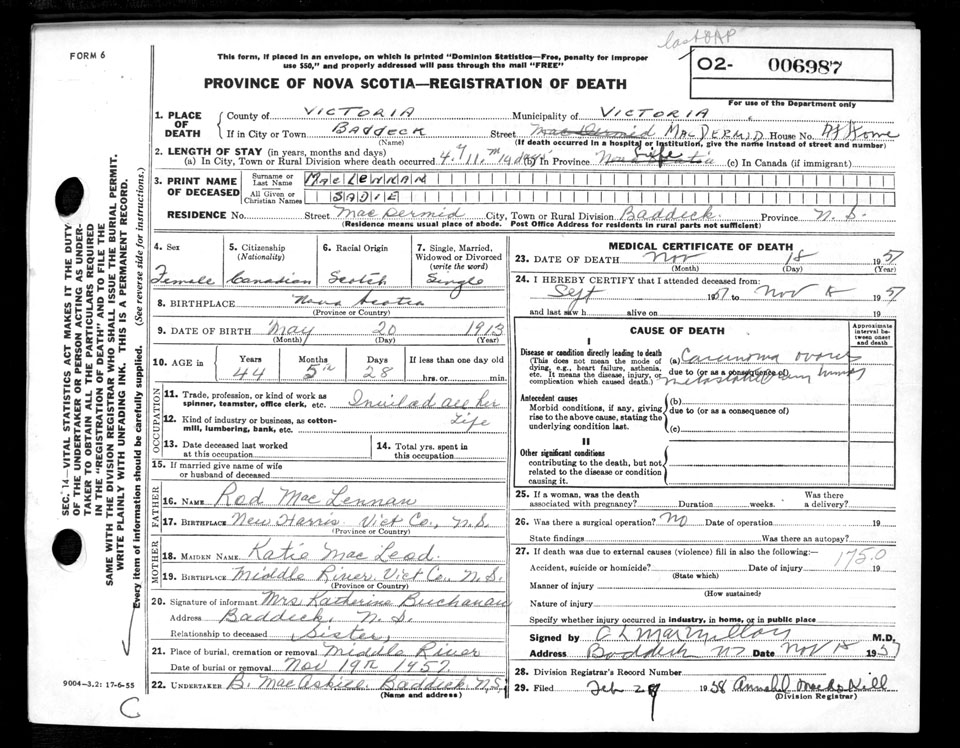 FORM 6
This form, if placed in an envelope, on which is printed "Dominion Statistics—Free, penalty for improper
use $50," and properly addressed will pass through the mail "FREE"
PROVINCE OF NOVA SCOTIA—REGISTRATION OF DEATH
O2- 006987
For use of the Department only
1. PLACE OF DEATH County of VICTORIA Municipality of VICTORIA
If in City or Town BADDECK Street MACDERMID House No.
(Name) (If death occurred in a hospital or institution, give the name instead of street and number)
2. LENGTH OF STAY (in years, months and days)
(a) In City, Town or Rural Division where death occurred (b) In Province Life (c) In Canada (if immigrant)
3. PRINT NAME OF DECEASED Surname or Last Name MACLENNAN
All Given or Christian Names SADIE
RESIDENCE No. Street MacDermid City, Town or Rural Division Baddeck Province N. S.
(Residence means usual place of abode. Post Office Address for residents in rural parts not sufficient)
4. Sex 5. Citizenship (Nationality) 6. Racial Origin 7. Single, Married, Widowed or Divorced (write the word)
Female Canadian Scotch Single
8. BIRTHPLACE Nova Scotia
(Province or Country)
9. DATE OF BIRTH May 20 1913
(Month) (Day) (Year)
10. AGE in Years Months Days If less than one day old
44 5 28 hrs. or min.
OCCUPATION
11. Trade, profession, or kind of work as spinner, teamster, office clerk, etc. Invilad all her
12. Kind of industry or business, as cotton-mill, lumbering, bank, etc. Life
13. Date deceased last worked at this occupation 14. Total yrs. spent in this occupation
15. If married give name of wife or husband of deceased
FATHER
16. NAME Rod MacLennan
17. BIRTHPLACE New Harris Vict Co., N.S.
(Province or Country)
MOTHER
18. MAIDEN NAME Katie MacLeod
19. BIRTHPLACE Middle River Vict Co., N.S.
(Province or Country)
20. Signature of informant Mrs Katherine Buchanan
Address Baddeck, N. S.
Relationship to deceased Sister
21. Place of burial, cremation or removal Middle River
Date of burial or removal Nov 19th 1957
22. UNDERTAKER B. MacAskill Baddeck N.S.
(Name and address)
MEDICAL CERTIFICATE OF DEATH
23. DATE OF DEATH Nov 18 1957
(Month) (Day) (Year)
24. I HEREBY CERTIFY that I attended deceased from:
Sept 1957 to Nov 1957
and last saw h alive on 19
CAUSE OF DEATH
Approximate interval between onset and death
I
Disease or condition directly leading to death (a) Carcinoma ovaries
(This does not mean the mode of dying, e.g., heart failure, asthenia, etc. It means the disease, injury, or complication which caused death.) due to (or as a consequence of)
Antecedent causes
Morbid conditions, if any, giving rise to the above cause, stating the underlying condition last. (b) due to (or as a consequence of)
(c)
II
Other significant conditions
contributing to the death, but not related to the disease or condition causing it.
25. If a woman, was the death associated with pregnancy? Duration weeks. Was there a delivery?
26. Was there a surgical operation? No Date of operation 19
State findings Was there an autopsy?
27. If death was due to external causes (violence) fill in also the following:—
1750
Accident, suicide or homicide? Date of injury 19
(State which)
Manner of injury
(How sustained)
Nature of injury
Specify whether injury occurred in industry, in home, or in public place
Signed by C L MacMillan M.D.
Address Baddeck NS Date Nov 18 1957
28. Division Registrar's Record Number
29. Filed Feb 1958
(Division Registrar)
SEC. 14—VITAL STATISTICS ACT MAKES IT THE DUTY
OF THE UNDERTAKER OR PERSON ACTING AS UNDER-
TAKER TO OBTAIN ALL THE PARTICULARS REQUIRED
IN THE "REGISTRATION OF DEATH" AND TO FILE THE
SAME WITH THE DIVISION REGISTRAR WHO SHALL ISSUE THE BURIAL PERMIT.
WRITE PLAINLY WITH UNFADING INK. THIS IS A PERMANENT RECORD.
Every item of information should be carefully supplied. (See reverse side for instructions.)
9004—3.2: 17-6-55
C